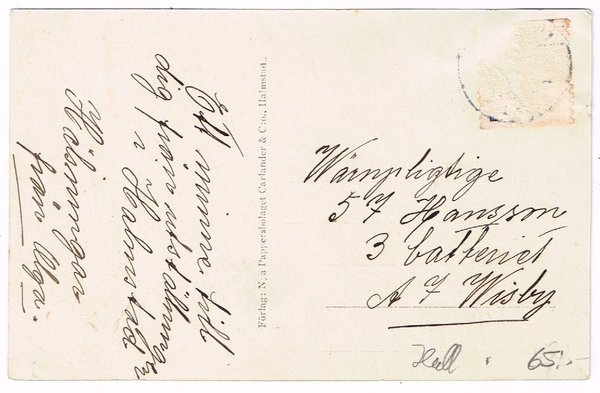 Ett minne till
dig från utställningen
i Halmstad
Hälsningar
från Olga.
Förlag: N:a Pappersbolaget Carlander & C:o., Halmstad.
Wärnpligtige
57 Hansson
3 batteriet
A 7 Wisby
Hall
65:-